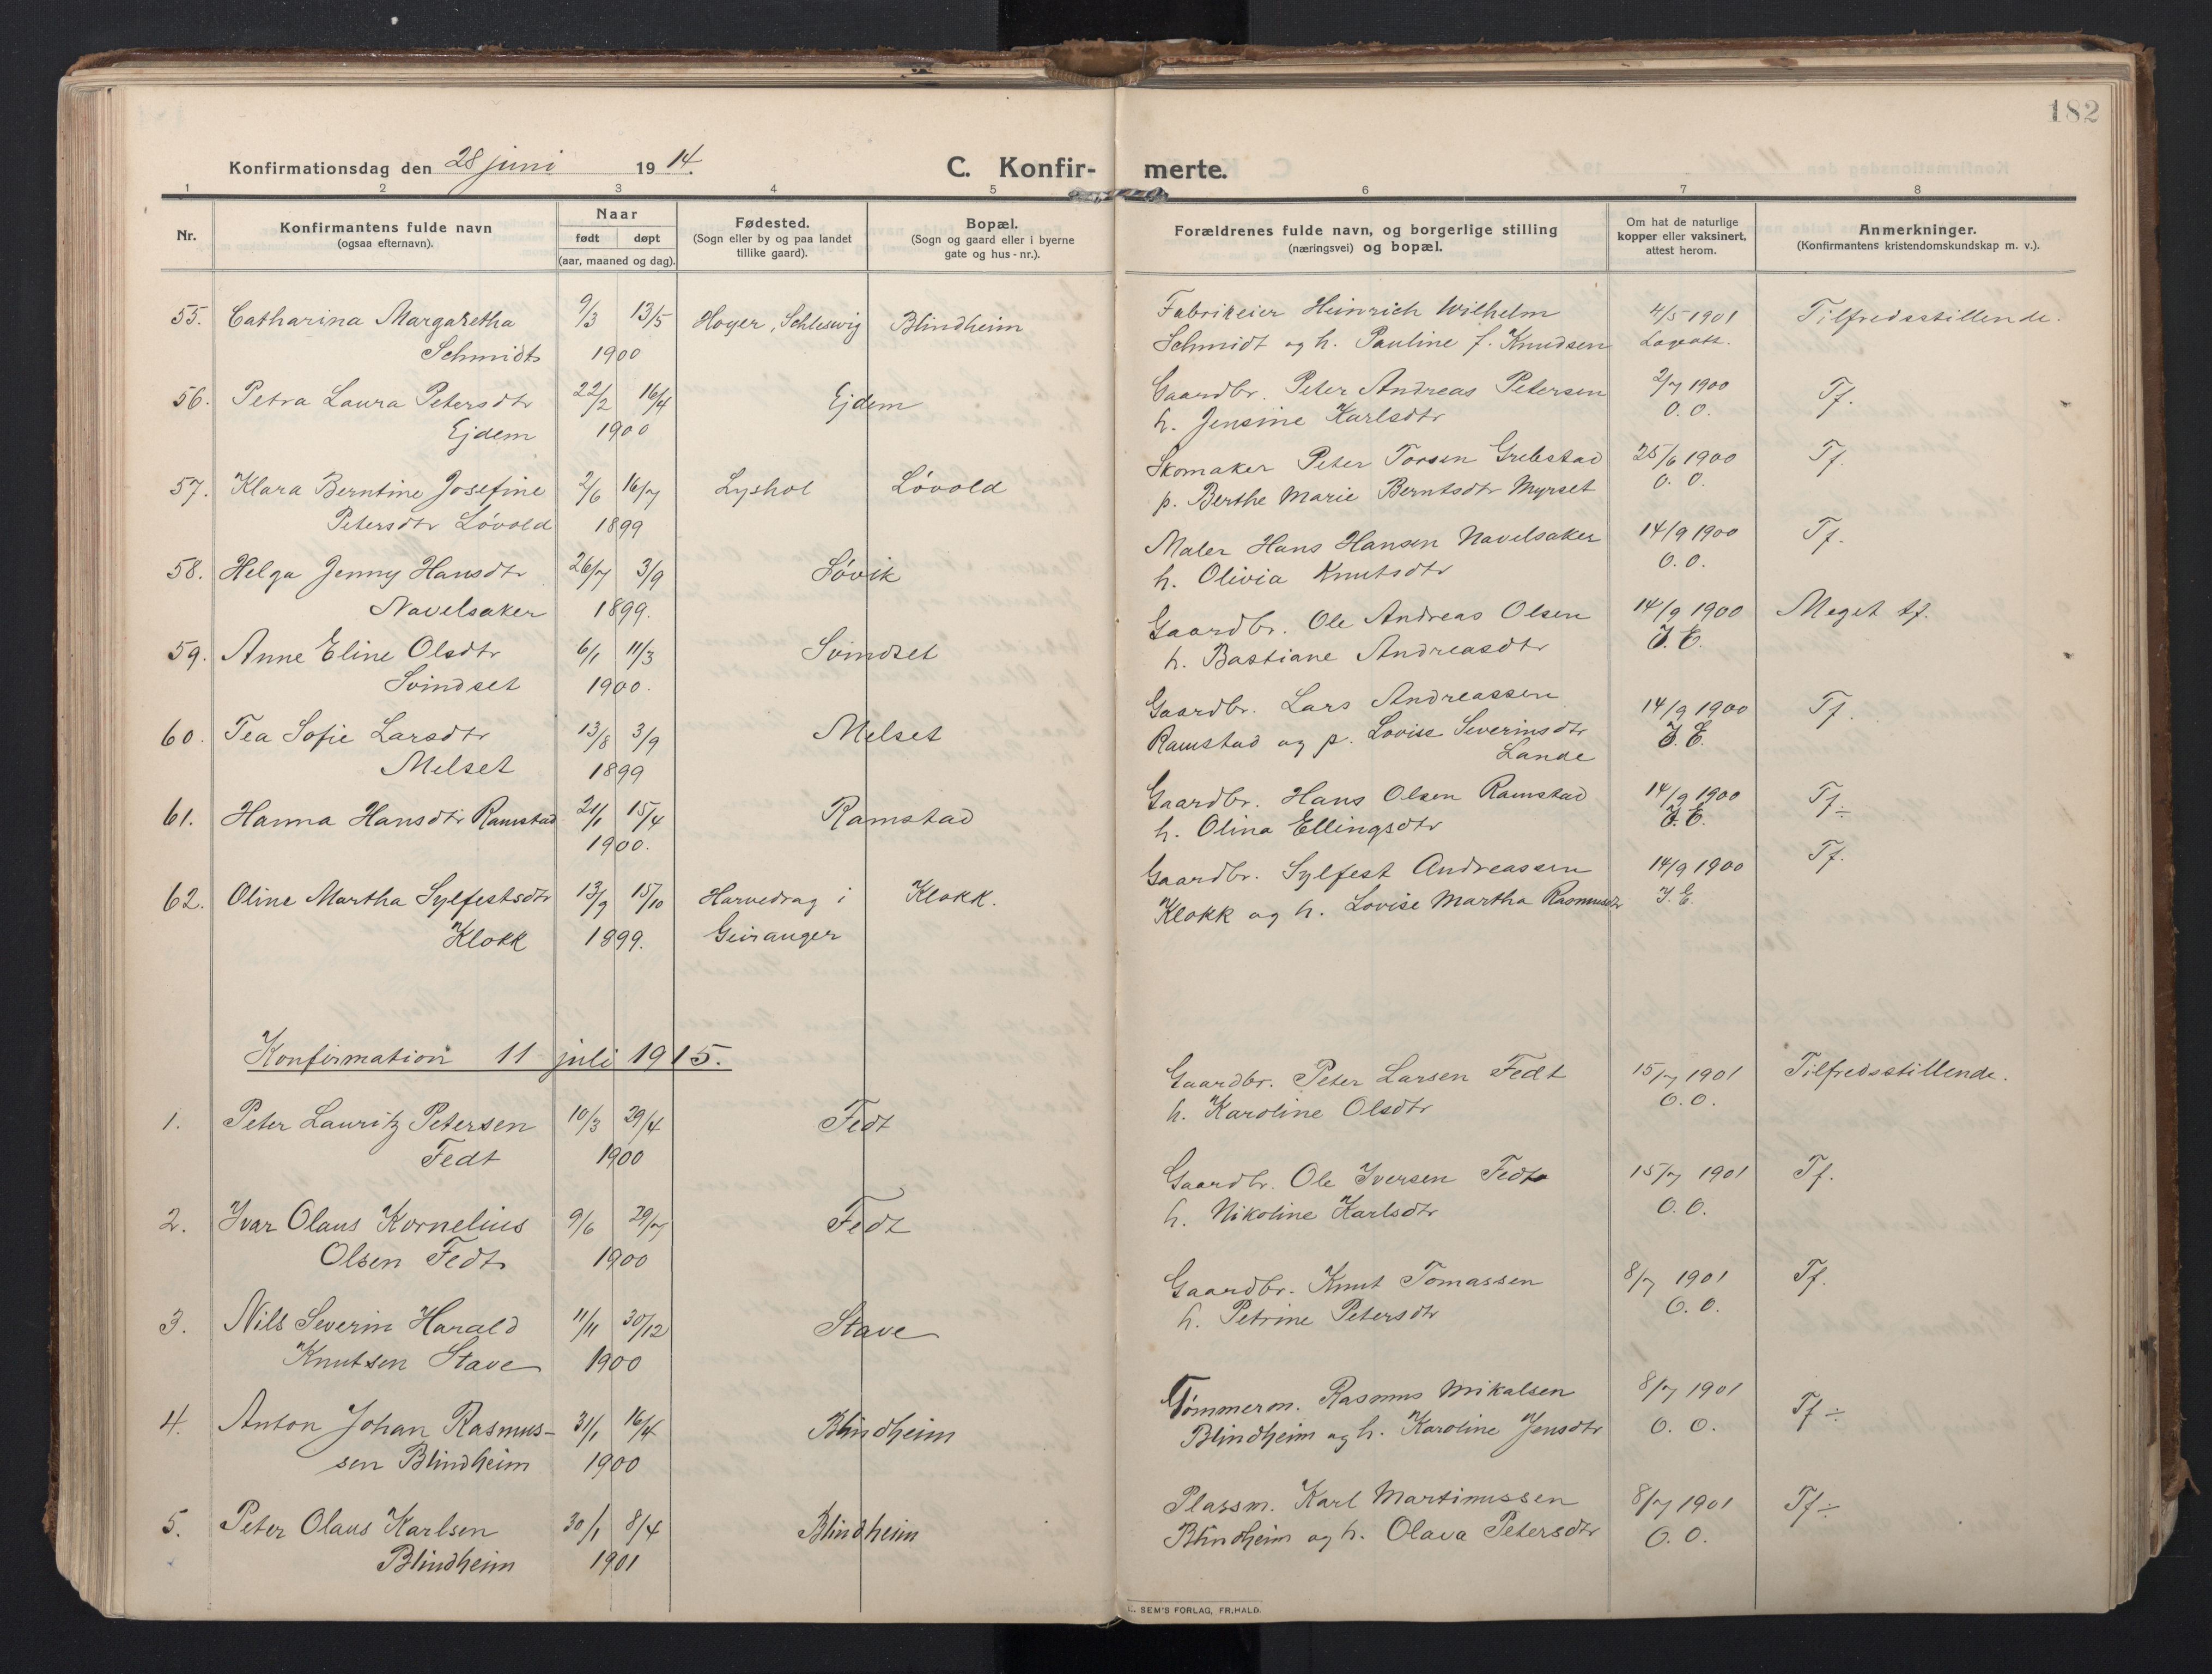 182
Konfirmationsdag den 28 juni 1914.
C. Konfir-
merte.
1 2 3 4 5 6 7 8
Nr.
Konfirmantens fulde navn
(ogsaa efternavn).
Naar
født døpt
(aar, maaned og dag).
Fødested.
(Sogn eller by og paa landet
tillike gaard).
Bopæl.
(Sogn og gaard eller i byerne
gate og hus-nr.).
Forældrenes fulde navn, og borgerlige stilling
(næringsvei) og bopæl.
Om hat de naturlige
kopper eller vaksinert,
attest herom.
Anmerkninger.
(Konfirmantens kristendomskundskap m. v.).
55. Catharina Margaretha 9/3 13/5 Hoyer, Schleswig Blindheim Fabrikeier Heinrich Wilhelm 4/5 1901 Tilfredsstillende.
Schmidt 1900 Schmidt og h. Pauline f. Knudsen
56. Petra Laura Petersdtr 22/2 16/4 Ejdem Gaardbr. Peter Andreas Petersen 2/7 1900 Tf.
Ejdem 1900 h. Jensine Karlsdtr O. O.
57. Klara Berntine Josefine 2/6 16/7 Lyshol Løvold Skomaker Peter Torsen Grebstad 25/6 1900 Tf.
Petersdtr Løvold 1899 p. Berthe Marie Berntsdtr Myrset O. O.
58. Helga Jenny Hansdtr 26/7 3/9 Søvik Maler Hans Hansen Navelsaker 14/9 1900 Tf.
Navelsaker 1899. h. Olivia Knutsdtr O. O.
59. Anne Eline Olsdtr 6/1 11/3 Svindset Gaardbr. Ole Andreas Olsen 14/9 1900 Meget tf.
Svindset 1900. h. Bastiane Andreasdtr J. E.
60. Tea Sofie Larsdtr 13/8 3/9 Melset Gaardbr. Lars Andreassen 14/9 1900 Tf.
Melset 1899 Ramstad og p. Lovise Severinsdtr J. E.
Lande
61. Hanna Hansdtr Ramstad 21/1 15/4 Ramstad Gaardbr. Hans Olsen Ramstad 14/9 1900 Tf ÷
1900. h. Olina Ellingsdtr J. E.
62. Oline Martha Sylfestsdtr 13/9 15/10 Harvedrag i Klokk. Gaardbr. Sylfest Andreassen 14/9 1900 Tf.
Klokk 1899. Geiranger Klokk og h. Lovise Martha Rasmusdtr J. E.
Konfirmation 11 juli 1915.
1. Peter Lauritz Petersen 10/3 29/4 Fedt Gaardbr. Peter Larsen Fedt 15/7 1901 Tilfredsstillende.
Fedt 1900 h. Karoline Olsdtr O. O.
2. Ivar Olaus Kornelius 9/6 29/7 Fedt Gaardbr. Ole Iversen Fedt 15/7 1901 Tf.
Olsen Fedt 1900 h. Nikoline Karlsdtr O. O.
3. Nils Severin Harald 11/11 30/12 Stave Gaardbr. Knut Tomassen 8/7 1901 Tf.
Knutsen Stave 1900 h. Petrine Petersdtr O. O.
4. Anton Johan Rasmus- 31/1 16/4 Blindheim Tømmerm. Rasmus Mikalsen 8/7 1901 Tf ÷
sen Blindheim 1900 Blindheim og h. Karoline Jensdtr O. O.
5. Peter Olaus Karlsen 30/1 8/4 Blindheim Plassm. Karl Martinussen 8/7 1901 Tf ÷
Blindheim 1901 Blindheim og h. Olava Petersdtr O. O.
SEM'S FORLAG, FR.HALD.